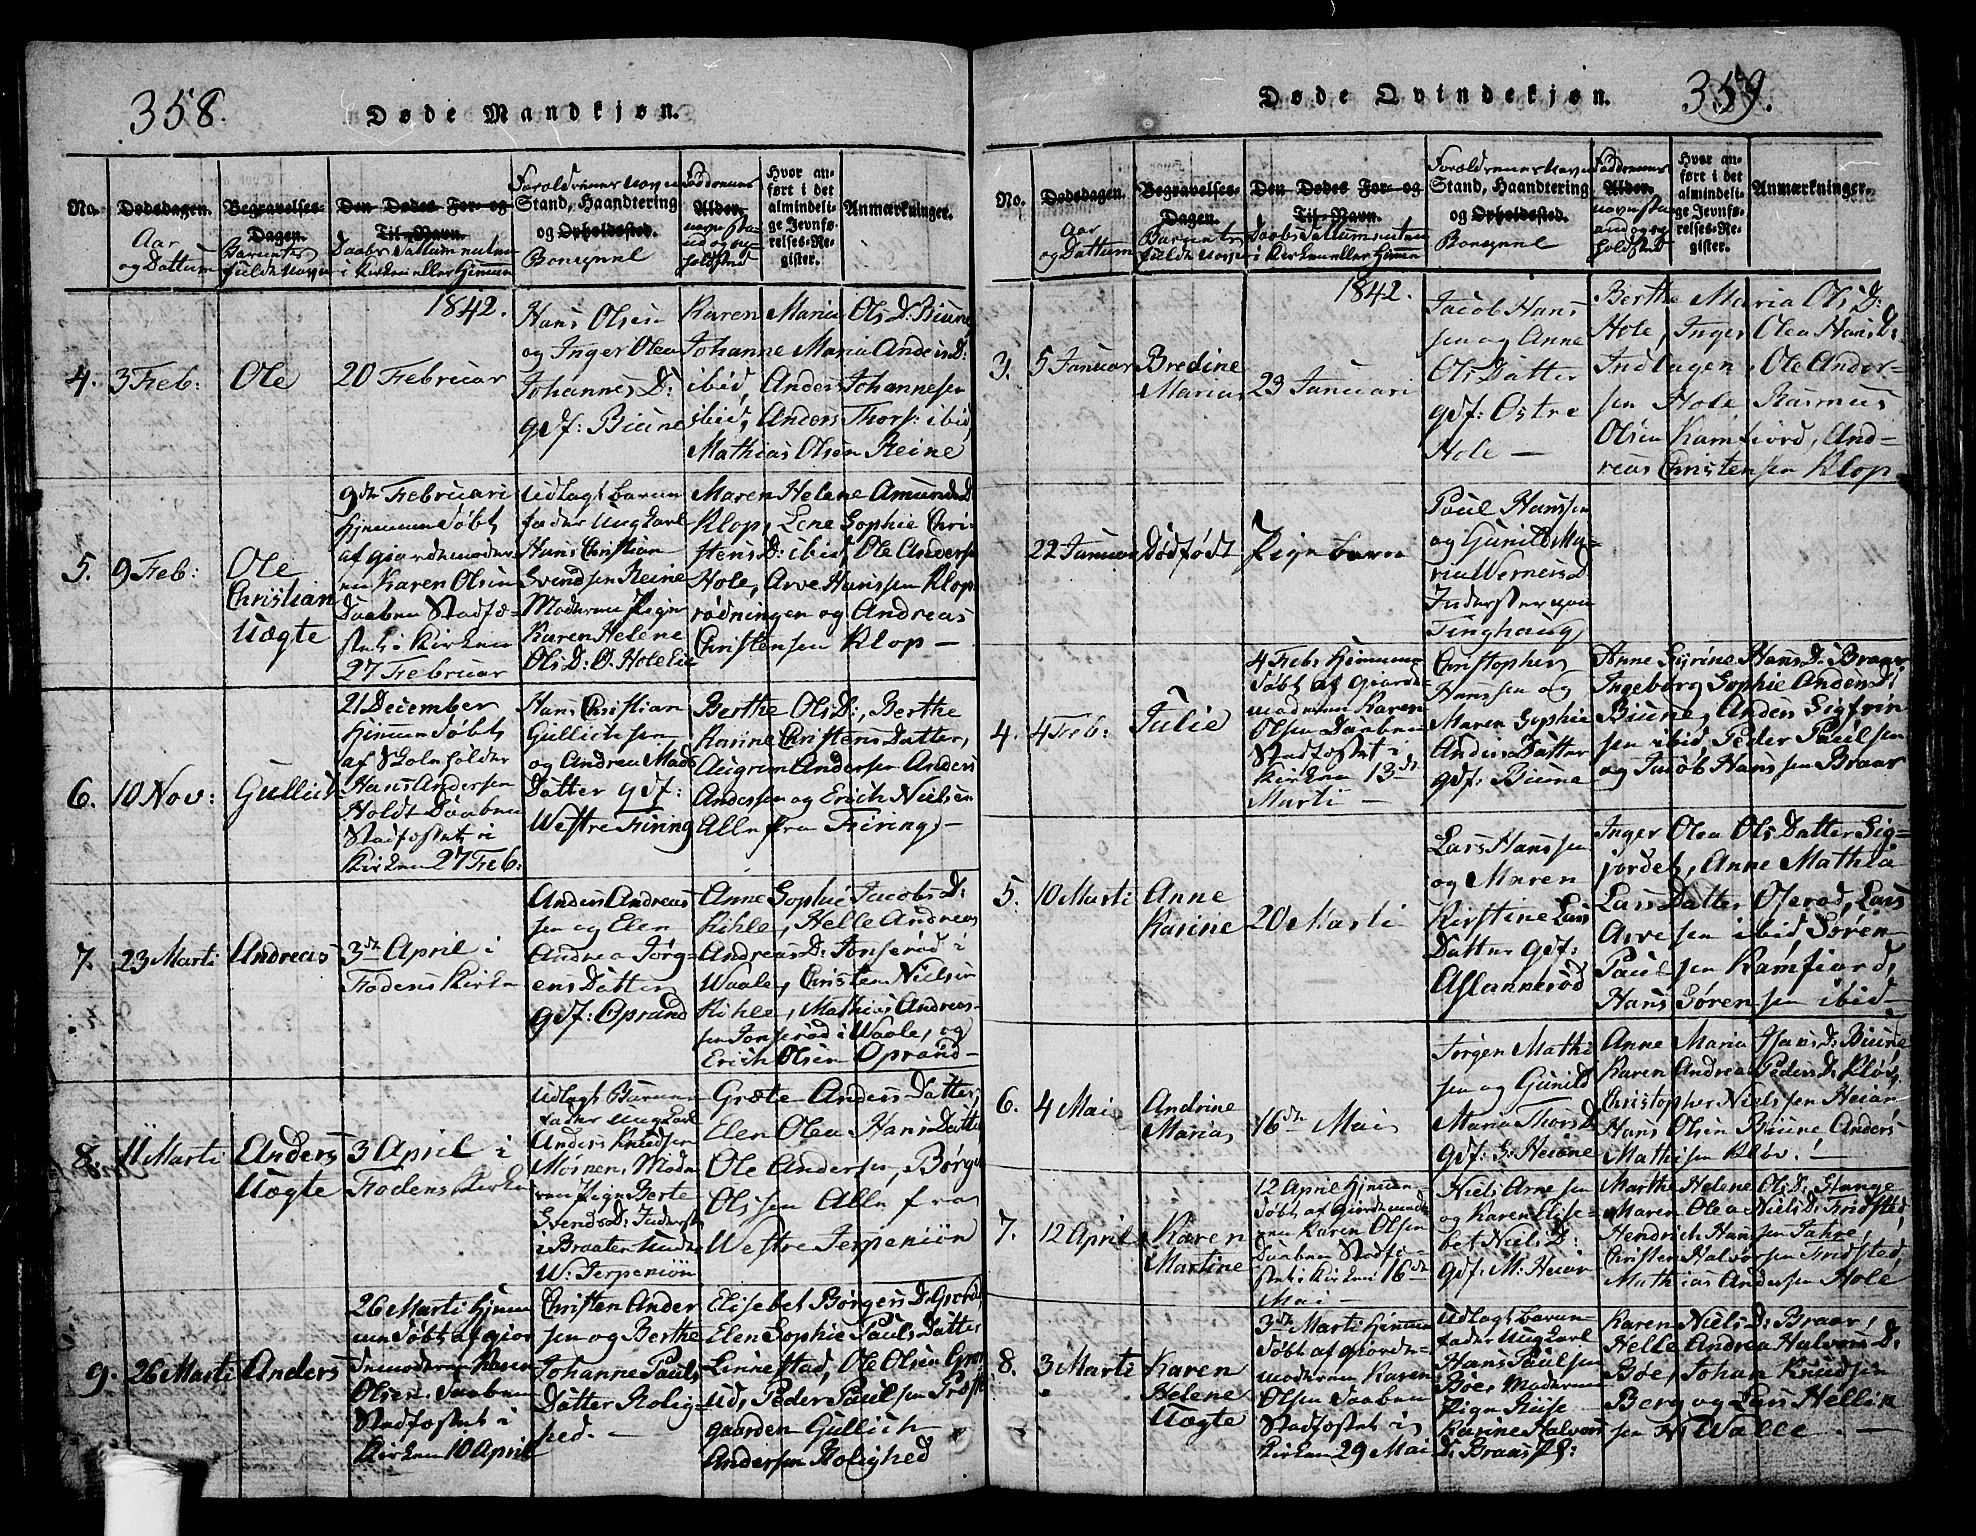 358.
Døde Mandkjøn.
No.
Dødsdagen.
Aar
og Dattum
Begravelses-
Dagen.
Barnets
fulde Navn
Den Dødes For- og
Til-Navn.
Daabs Dattum enten
i Kirken eller Hjemme
Foreldrenes Navn
Stand, Haandtering
og Opholdsted.
Boe
Faddernes
Alder.
navn sta-
nd og op-
holdsted
Hvor an-
ført i det
almindeli-
ge Jevnfø-
relses-Re-
gister.
Anmærkninger.
1842.
4.
3 Feb:
Ole
20 Februar
Hans Olsen
og Inger Olea
Johannes D:
gdf: Biune
Karen Maria Ols D: Biune
Johanne Maria Anders D:
ibid, Anders Johannesen
ibid, Anders Thors: ibid
Mathias Olsen Reine
5.
9 Feb:
Ole
Christian
Uægte
9de Februari
hjemmedøbt
af giordemoder-
en Karen Olsen
Daaben Stadfæ-
stet i Kirken
27 Februar
Udlagt barne
fader Ungkarl
Hans Christian
Svendsen Reine
Moderen Pigen
Karen Helene
Ols D: Ø. Hole Eie
Maren Helene Amunds D
Klop, Lene Sophie Chri-
stens D: ibid, Ole Anders:
Hole, Arve Hanssen Klop
rødningen og Andreas
Christensen Klop –
6.
10 Nov:
Gullich
21 December
hjemmedøbt
af Skoleholder
Hans Andersen
Holdt Daaben
Stadfæstet i
Kirken 27 Feb:
Hans Christian
Gullichsen
og Andrea Mads
Datter gdf:
Westre Firing
Berthe Ols D:, Berthe
Karine Christens Datter,
Augrim Andersen Anders
Andersen og Erich Nielsen
Alle fra Firing –
7.
23 Marti
Andreas
3de April i
Fodens Kirke
Anders Andreas
sen og Elen
Andrea Jørg-
ens Datter
gdf: Oprand
Anne Sophie Jacobs D:
Kihle, Helle Andreas
Andreas D: Tonserød i
Waale, Christen Nielsen
Kihle, Mathias Andreas-
sen Tonserød i Waale, og
Erich Olsen Oprand –
8.
11 Marti
Anders
Uægte
3 April i
Fodens Kirke
Udlagt Barne
fader Ungkarl
Anders Knudsen
Mørnen, Mode
ren Pige Berte
Svends D: Inderst
i Braaten under
W: Jerpeniøn
Græte Anders Datter,
Elen Olea Hans Datte
Ole Andersen, Børge
Olssen Alle fra
Westre Jerpeniøn
9.
26 Marti
Anders
26 Marti hjem
medøbt af gior
demoderen Karen
Olsen. Daaben
Stadfæstet i
Kirken 10 April
Christen Ander
sen og Berthe
Johanne Pauls
Datter Rolig-
hed. –
Elisebet Børgers D:
Elen Sophie Pauls Datter
Linnestad, Ole Olsen
ud, Peder Paulsen Præste
gaarden Gullich
Andersen Rolighed
359.
Døde Qvindekjøn.
No.
Dødsdagen.
Aar
og Dattum
Begravelses-
Dagen.
Barnets
fulde Navn
Den Dødes For- og
Til-Navn.
Daabs Dattum enten
i Kirken eller Hjemme
Forældrenes Navn
Stand, Haandtering
og Opholdsted.
Faddernes
Alder.
navn sta
nd og op-
holdsted
Hvor an-
ført i det
almindeli-
ge Jevnfø-
relses-Re-
gister.
Anmærkninger.
1842.
3.
5 Januar
Bredine
Maria
23 Januari
Jacob Hans
sen og Anne
Ols Datter
gdf: Østre
Hole –
Berthe Maria Ols D:
Hole, Inger Olea Hans D:
Indlagen, Ole Ander-
sen Hole Rasmus
Olsen Ramfiord, And-
reas Christensen Klop
22 Januar
Dødfødt
Pigebarn
Paul Hanssen
og Gunild Ma-
ria Werners D
Inderster paa
Tinghaug
4.
4 Feb:
Julie
4 Feb: hjemme
døbt af giorde-
moderen Karen
Olsen Daaben
Stadfæstet i
Kirken 13de
Marti –
Christopher
Hanssen og
Maren Sophie
Anders Datter
gdf: Biune
Anne Sirine Hans D: Braar
Ingeborg Sophie Anders D:
Biune, Anders Sigfrin
sen ibid, Peder Paulsen
og Jacob Hanssen Braar
5.
10 Marti
Anne
Karine
20 Marti
Lars Hanssen
og Maren
Kirstine Lars
Datter gdf:
Aslannerød
Inger Olea Ols Datter Sig-
jordet, Anne Mathia
Lars Datter Olerød, Lars
Arvesen ibid Søren
Paulsen Ramfiord,
Hans Sørensen ibid –
6.
4 Mai
Andrine
Maria
16de Mai
Jørgen Mathi
sen og Gunild
Maria Thors D
gdf: S: Heiane
Anne Maria Hans D: Biune
Karen Andrea Peders D: Kløv,
Christopher Nielsen Heian
Hans Olsen Biune Anders
Mathisen Kløv. –
7.
12 April
Karen
Martine
12 April hjemme-
døbt af giordemoder
en Karen Olsen
Daaben Stadfæ-
stet i Kirken 16de
Mai –
Niels Arnesen
og Karen Elise-
bet Niels D:
gdf: M: Heiar
Marthe Helene Ols D: Stange
Maren Olea Niels D: Fridsted,
Hendrich Hansen Fahre,
Christen Halvorsen Fridsted,
Mathias Andersen Hole
8.
3 Marti
Karen
Helene
Uægte
3de Marti hjemme
døbt af giorde-
moderen Karen
Olsen Daaben
Stadfæstet i
Kirken 29 Mai
Udlagt barne
fader Ungkarl
Hans Paulsen
Bøe, Moderen
Pigen
Karine Halvors
D: Braar
Karen Niels D: Braar,
Helle Andrea Halvors D:
Bøe, Johan Knudsen
Berg og Lars Hellin
sen N: Walle. –